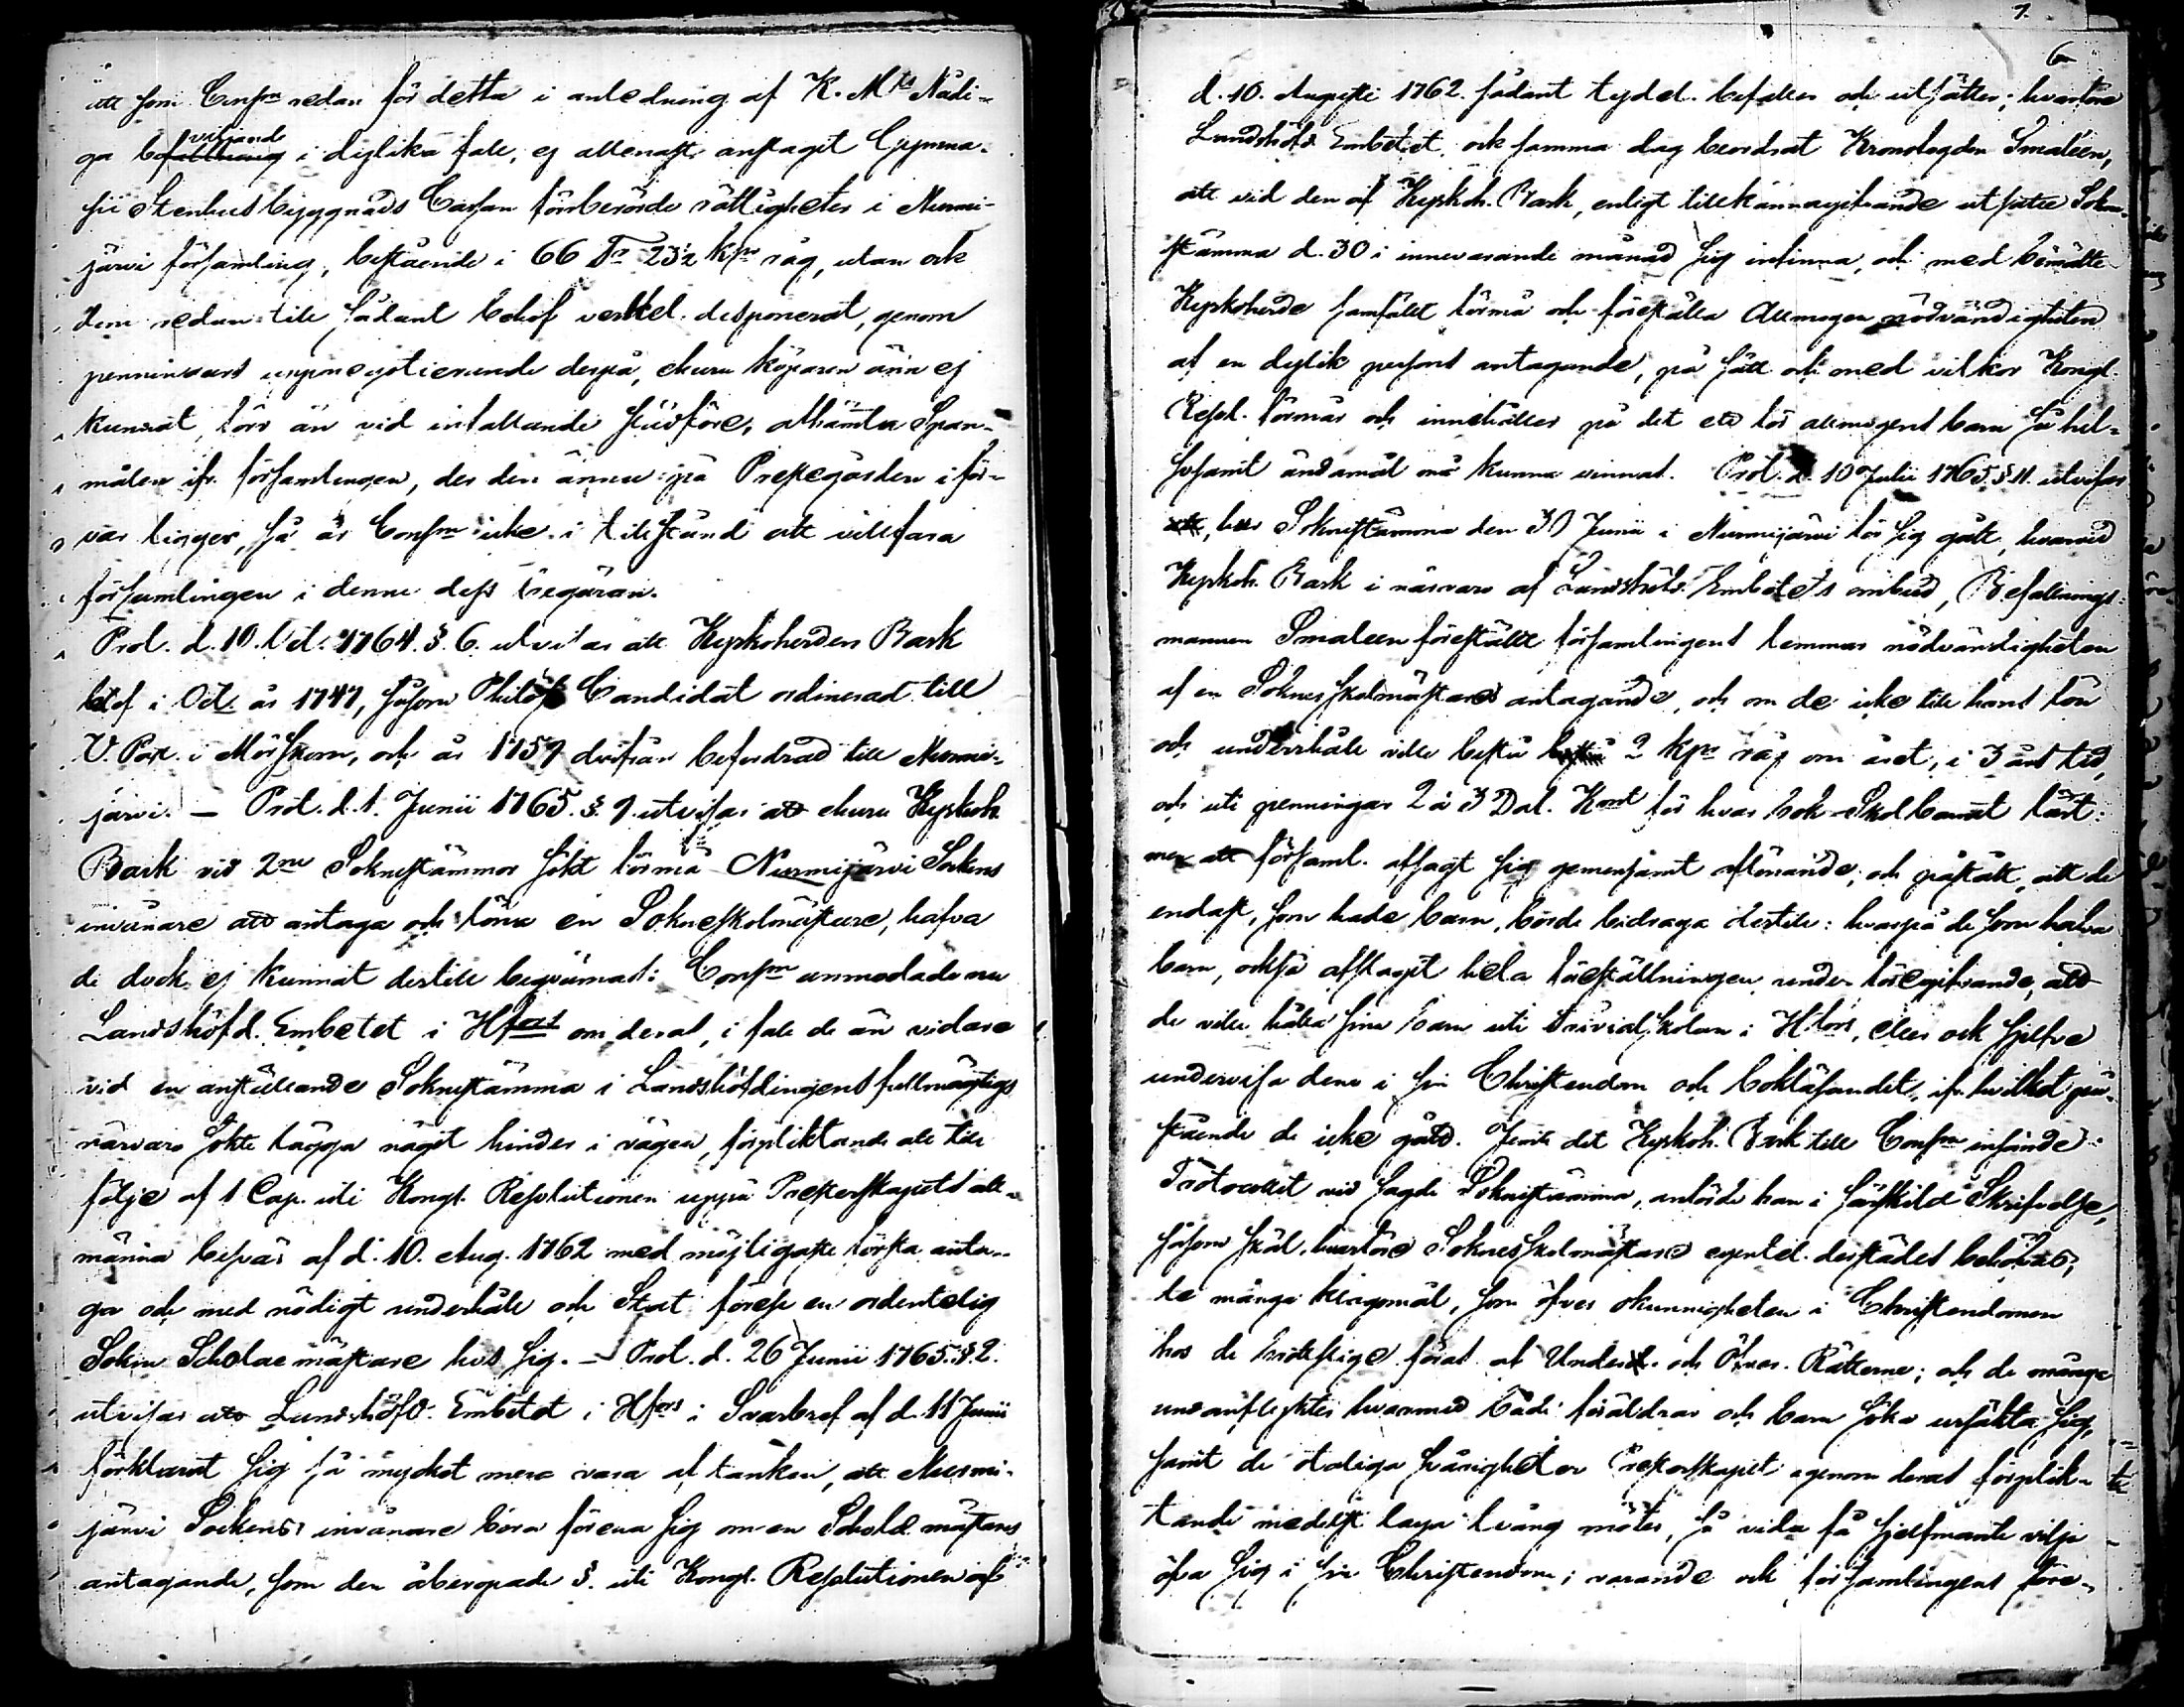 att som Consm redan för detta i anledning af K. Mts Nådi-
ga befallning viljande i dylika fall, ej allenast anslagit Gymna-
sii Stenhusbyggnads Cassan förberörde rättigheter i Nurmi-
järvi församling, bestående i 66 Tr 23½ kpr råg, utan ock
dem redan till sådant behof verkel. disponerat, genom
penningars uppnegotierende derpå, ehuru köparen ännu ej
kunnat, förr än vid infallande slädföre, afhämta Span-
målen ifr. församlingen, der den ännu på Prestegården i för-
var ligger, så är Consm icke i tillstånd att villfara
församlingen i denne dess begäran.
Prot. d. 10. Oct. 1764. §. 6. utvisar att Kyrkoherden Bark
blef i Oct. år 1747, såsom Philos. Candidat ordinerad till
V. Past. i Mörskom, och år 1757 derifrån befordrad till Nurmi-
järvi. — Prot. d. 1. Junii 1765. §. 7. utvisar att ehuru Kyrkoh.
Bark vid 2ne Sokenstämmor sökt förmå Nurmijärvi Sockens
invånare att antaga och löna en Sokneskolmästare, hafva
de dock ej kunnat dertill beqvämas: Consm anmodade nu
Landshöfd. Embetet i Hfors om deras, i fall de än vidare
vid en anställande Soknestämma i Landshöfdingens fullmägtiges
närvaro sökte lägga någit hinder i vägen, förpliktande att till
följe af 1 Cap. uti Kongl. Resolutionen uppå Presterskapets all-
männa besvär af d. 10. Aug. 1762 med möjligaste första anta-
ga och med nödigt underhåll och Stat förese en ordentelig
Sokne Scholae mästare hos sig. — Prot. d. 26 Junii 1765. §. 2.
utvisar att Landshöfd. Embetet i Hfors i Svarbref af d. 11 Junii
förklarat sig så mycket mera vara af tanken, att Nurmi-
järvi Sockens invånare böra förena sig om en Schole mästares
antagande, som den åberopade §. uti Kongl. Resolutionen af
7.
6
d. 10. Augusti 1762. sådant tydel. befaller och utsätter; hvarföre
Landshöfd. Embetet ock samma dag beordrat Kronofogden Smaleen,
att vid den af Kyrkoh. Bark, enligt tillkännagifvande utsatte Sokne-
stämma d. 30 i innevarande månad sig infinna, och med bemälte
Kyrkoherde samfält förmå och föreställa Allmogen nödvändigheten
af en dylik persons antagande, på sätt och med vilkor Kongl.
Resol. förmår och innehåller på det ett för allmogens barn så hel-
sosamt ändamål må kunna vinnas. Prot. d. 10 Julii 1765. §. 11. utvisar
att, huru Soknestämma den 30 Junii i Nurmijärvi för sig gått, hvarvid
Kyrkoh. Bark i närvaro af Landshöfd. Embetets ombud, Befallnings-
mannen Smaleen föreställt församlingens lemmar nödvändigheten
af en Soknes skolmästares antagande, och om de icke till hans lön
och underhåll ville bestå 2 kpr råg om året, i 3 års tid,
och uti penningar 2 à 3 Dal. Kmt för hvar bok Skolbarnet lärt:
men att församl. afsagt sig gemensamt aflönande, och påstått, att de
endast, som hade barn, borde bidraga dertill: hvarpå de som hafva
barn, också afslagit hela föreställningen under föregifvande, att
de ville hålla sina barn uti Trivial Skolan i Hfors, eller ock sjelfve
undervisa dem i sin Christendom och bokläsandet, ifr. hvilket på-
stående de icke gått. Jemte det Kyrkoh. Bark till Consm insände
Protocollet vid sagde Soknestämma, anförde han i särskild Skrifvelse,
såsom skäl, hvarföre Soknes skolmästare egentel. derstädes behöfves,
te många klagomål, som öfver okunnigheten i Christendomen
hos de brottslige föras af Under och Öfver Rätterne; och de många
undanflykter hvarmed både föräldrar och barn söka ursäkta sig,
samt de otaliga svårigheter Presterskapet genom deras förplik-
tande medelst laga tvång möter, så vida få sjelfmante vilja
öfva sig i sin Christendom; varande ock församlingens före-